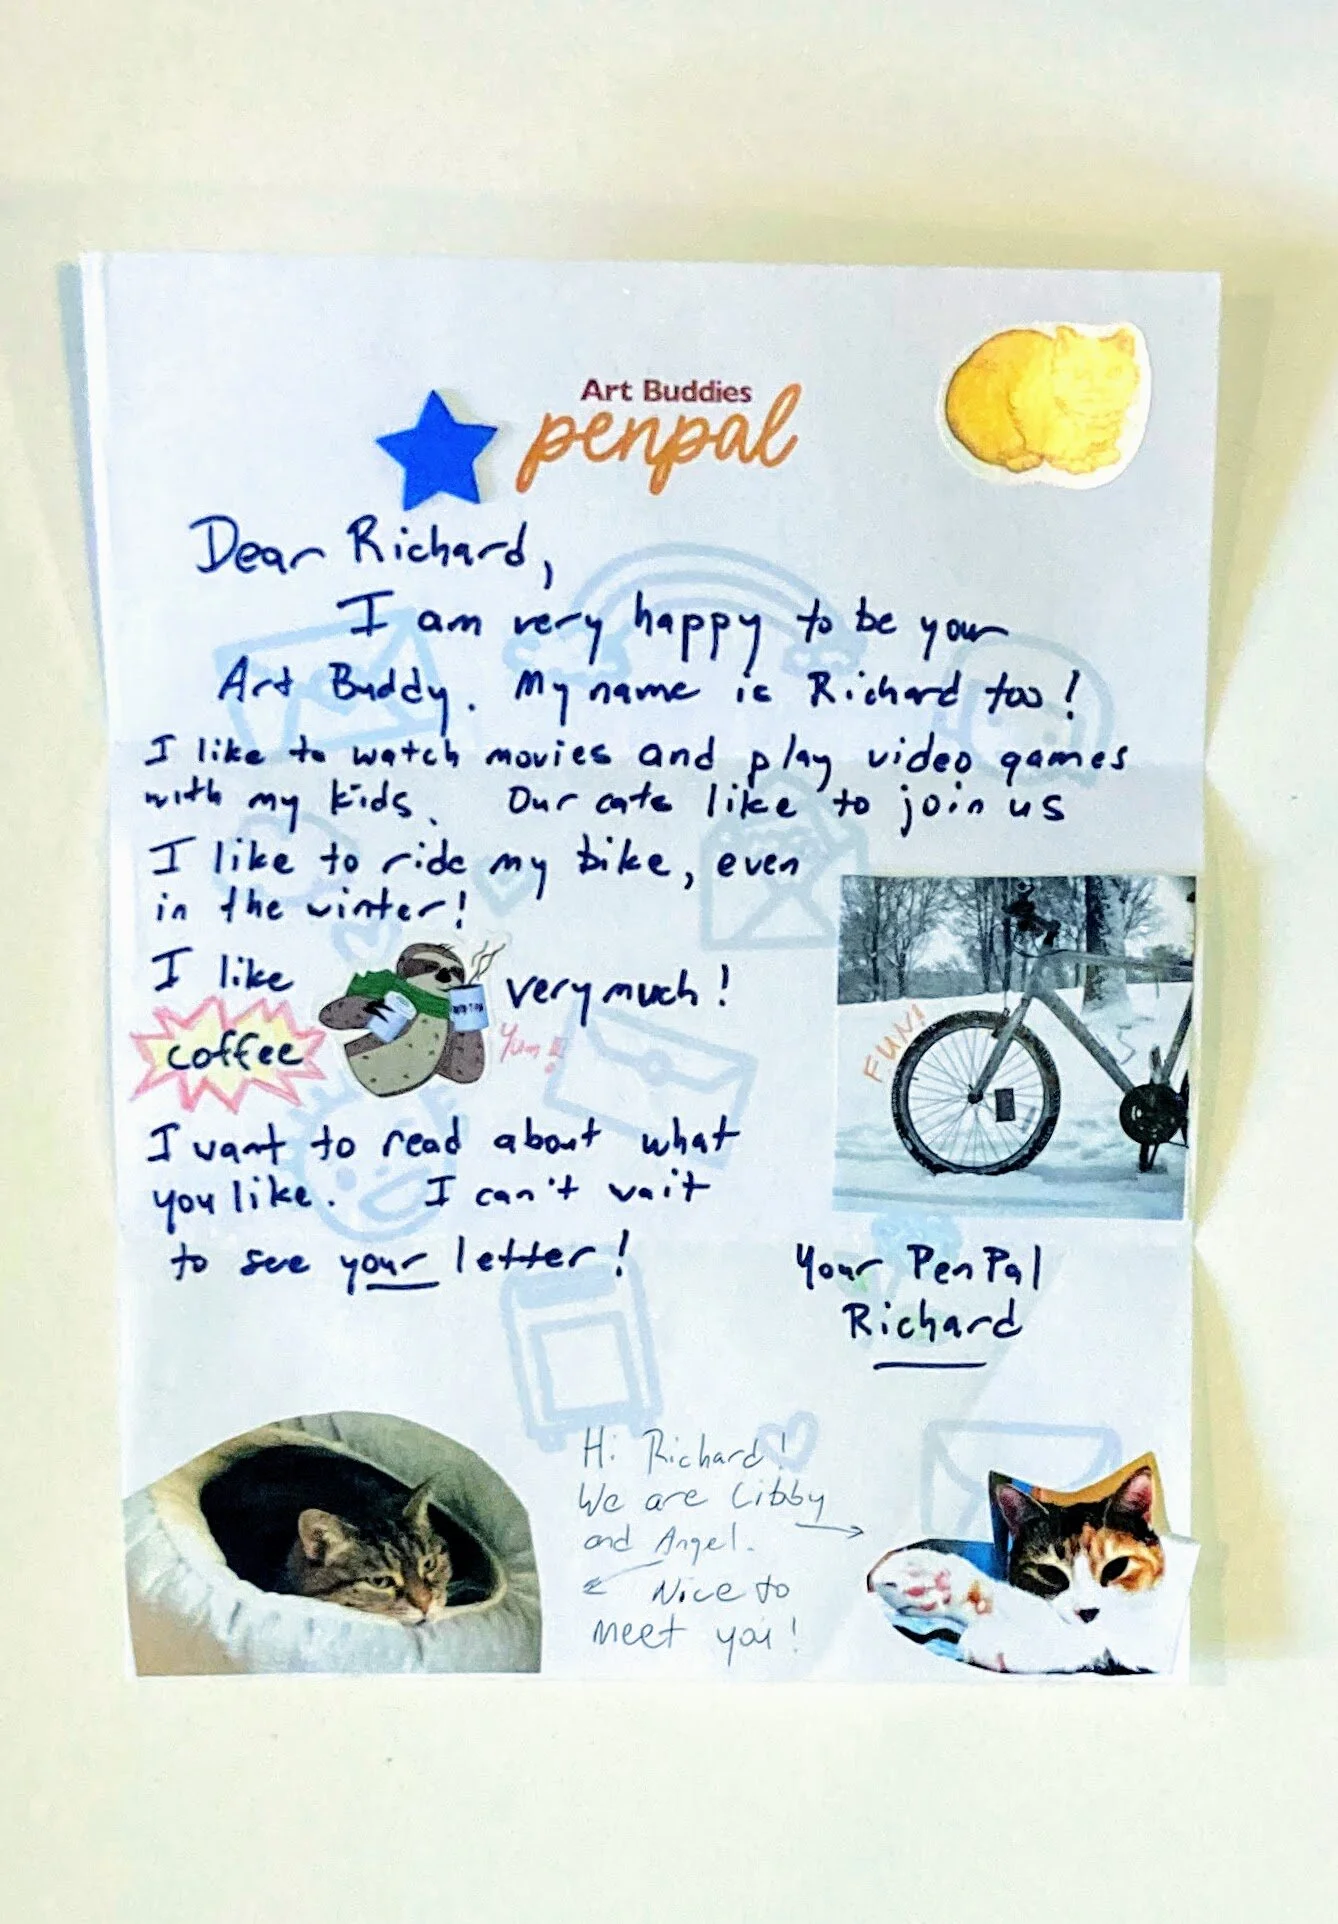 Art Buddies
penpal
Dear Richard,
I am very happy to be your
Art Buddy. My name is Richard too!
I like to watch movies and play video games
with my kids. Our cats like to join us
I like to ride my bike, even
in the winter!
I like very much!
coffee
Yum!!
FUN!
I want to read about what
you like. I can't wait
to see your letter!
Your PenPal
Richard
Hi Richard!
We are Libby
and Angel.
Nice to
meet you!